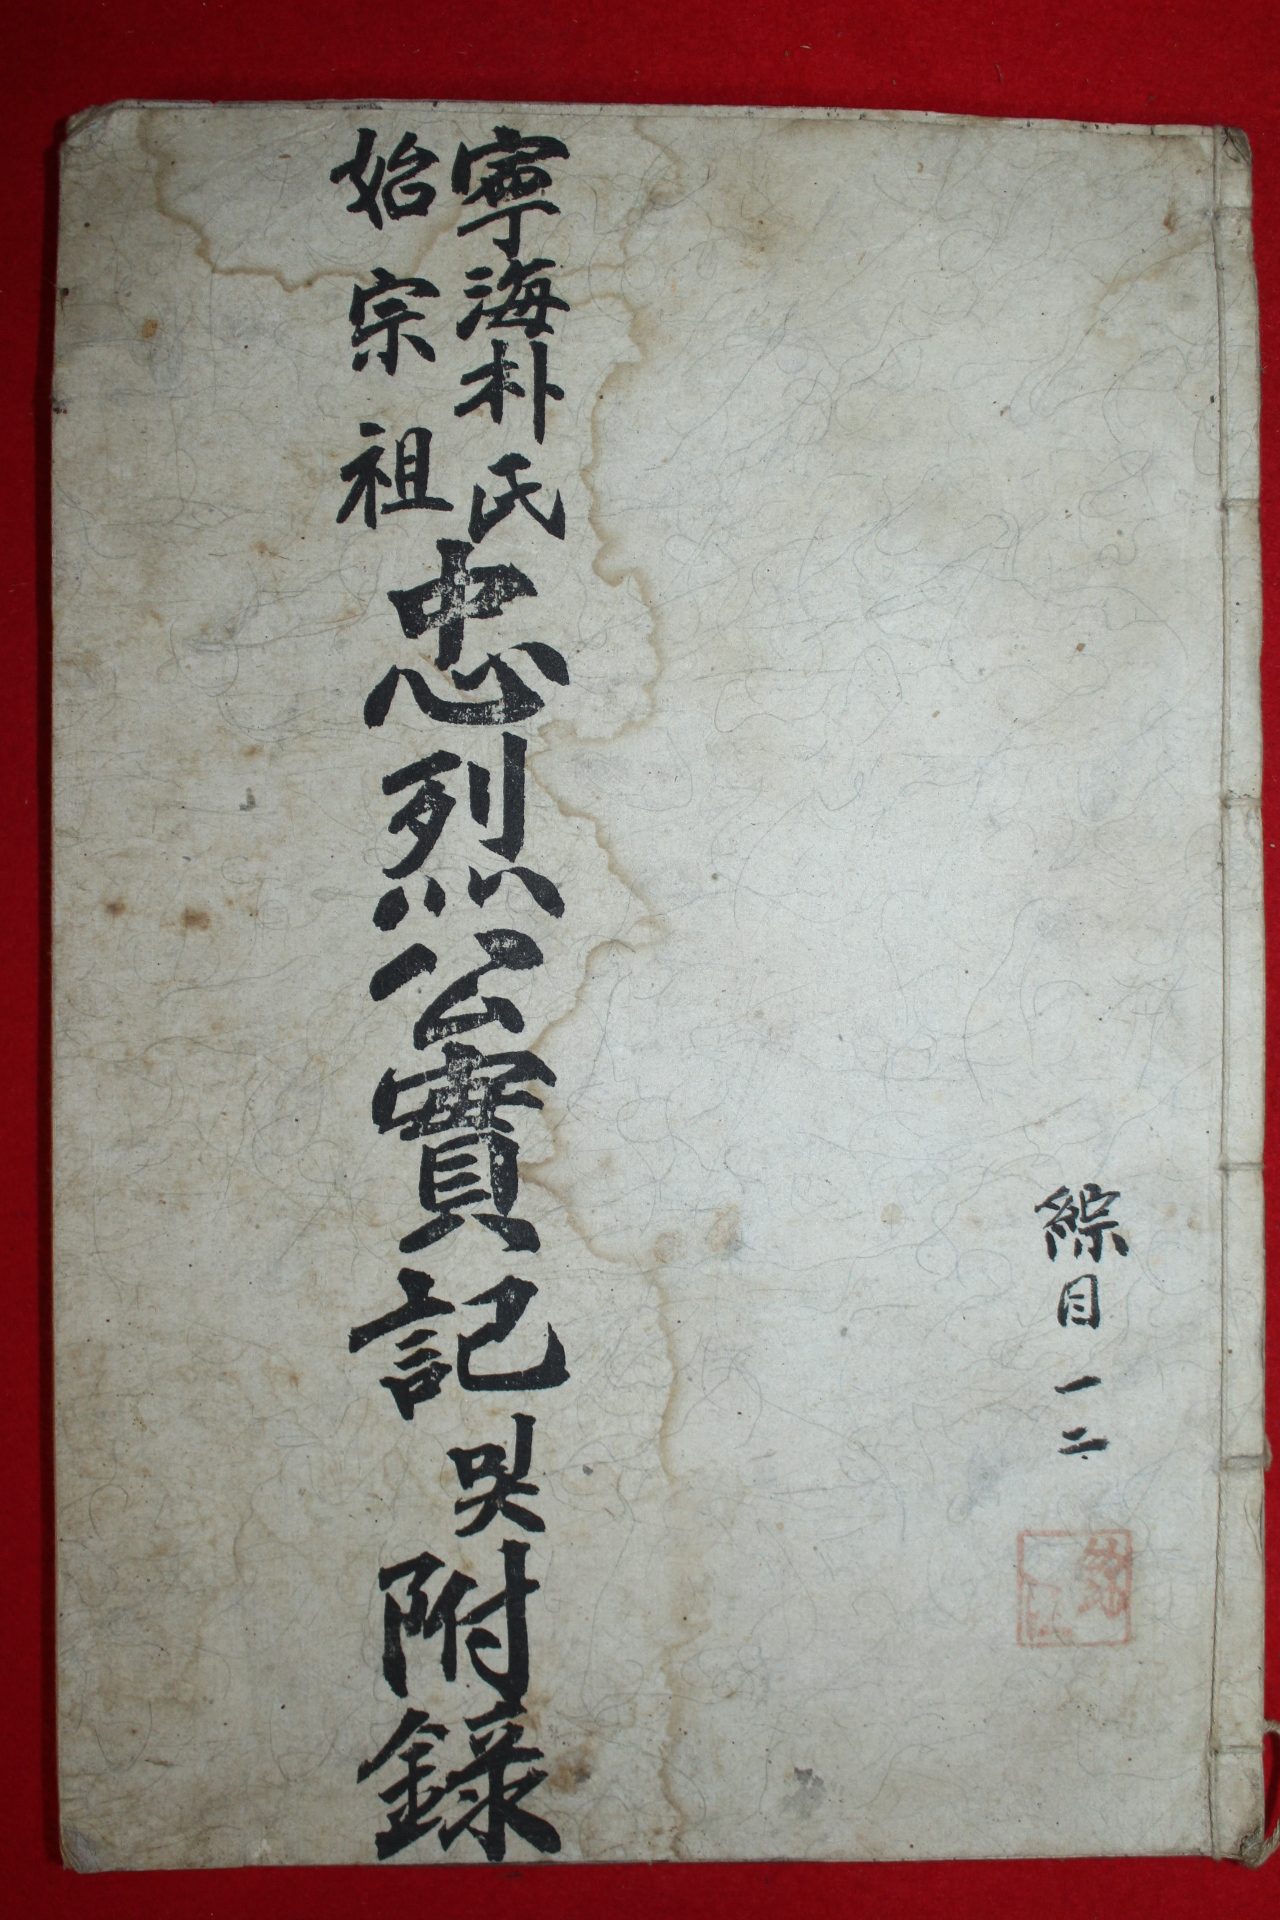 綜目一二
寧海朴氏
始宗祖
忠烈公實記및附錄